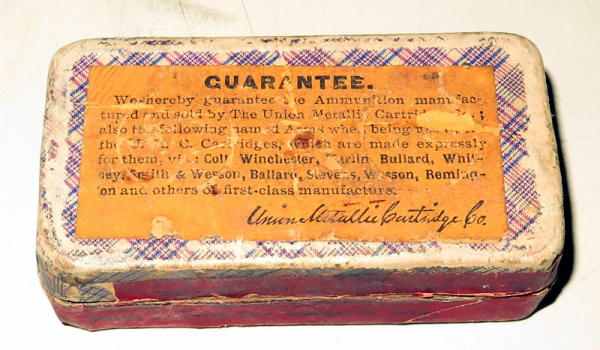 GUARANTEE.
We hereby guarantee the Ammunition manufac-
tured and sold by The Union Metallic
also the following named Arms when being
the Cartridges, which are made expressly
for them, viz: Colt, Winchester, Marlin, Bullard, Whit-
ney, Smith & Wesson, Ballard, Stevens, Wesson, Reming-
ton and others of first-class manufacture.
Union Metallic Cartridge Co.